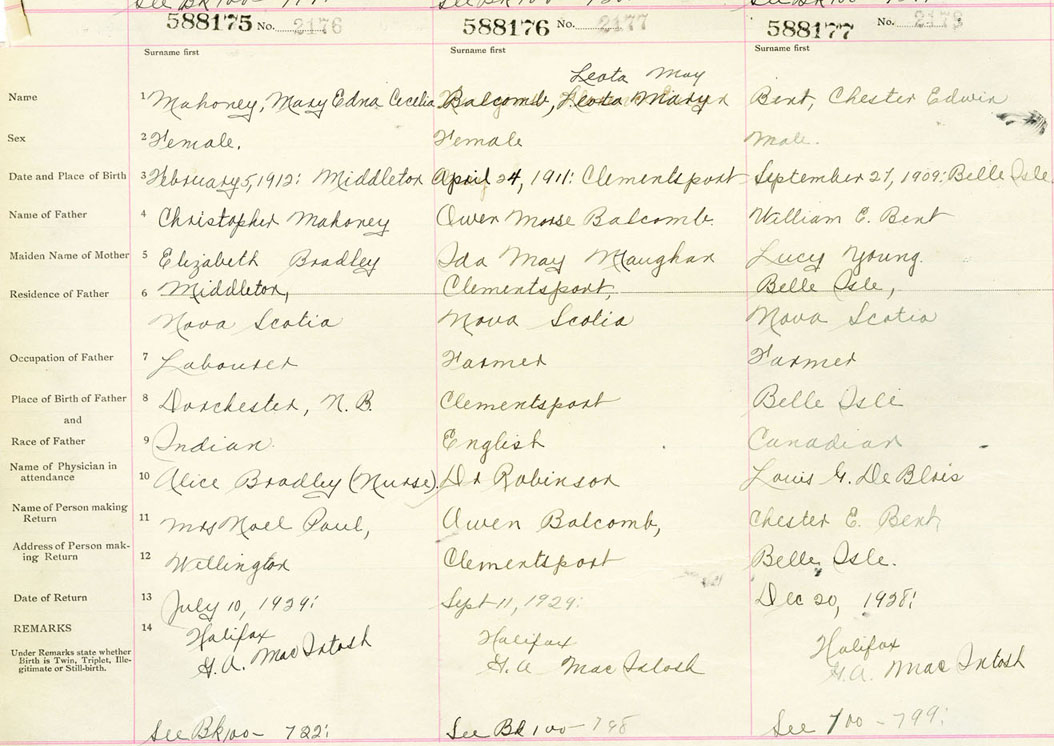 588175 No. 2176
588176 No. 2177
588177 No. 2178
Surname first
Surname first
Surname first
Leota May
Name 1 Mahoney, Mary Edna Cecilia Balcomb, Bent, Chester Edwin
Sex 2 Female. Female Male.
Date and Place of Birth 3 February 5, 1912: Middleton April 24, 1911: Clementsport September 27, 1909: Belle Isle.
Name of Father 4 Christopher Mahoney Owen Morse Balcomb. William E. Bent
Maiden Name of Mother 5 Elizabeth Bradley Ida May Maughan Lucy Young.
Residence of Father 6 Middleton, Clementsport, Belle Isle,
Nova Scotia Nova Scotia Nova Scotia
Occupation of Father 7 Labourer Farmer Farmer
Place of Birth of Father 8 Dorchester, N.B. Clementsport Belle Isle
and
Race of Father 9 Indian English Canadian
Name of Physician in
attendance 10 Alice Bradley (Nurse). Dr Robinson Louis G. DeBlois
Name of Person making
Return 11 Mrs Noel Paul, Owen Balcomb, Chester E. Bent,
Address of Person mak-
ing Return 12 Wellington Clementsport Belle Isle.
Date of Return 13 July 10, 1929: Sept 11, 1929: Dec 20, 1928:
REMARKS 14 Halifax Halifax Halifax
G.A. MacIntosh G.A MacIntosh G.A. MacIntosh
Under Remarks state whether
Birth is Twin, Triplet, Ille-
gitimate or Still-birth.
See Bk 100 - 722: See Bk 100 - 798 See 100 - 799: